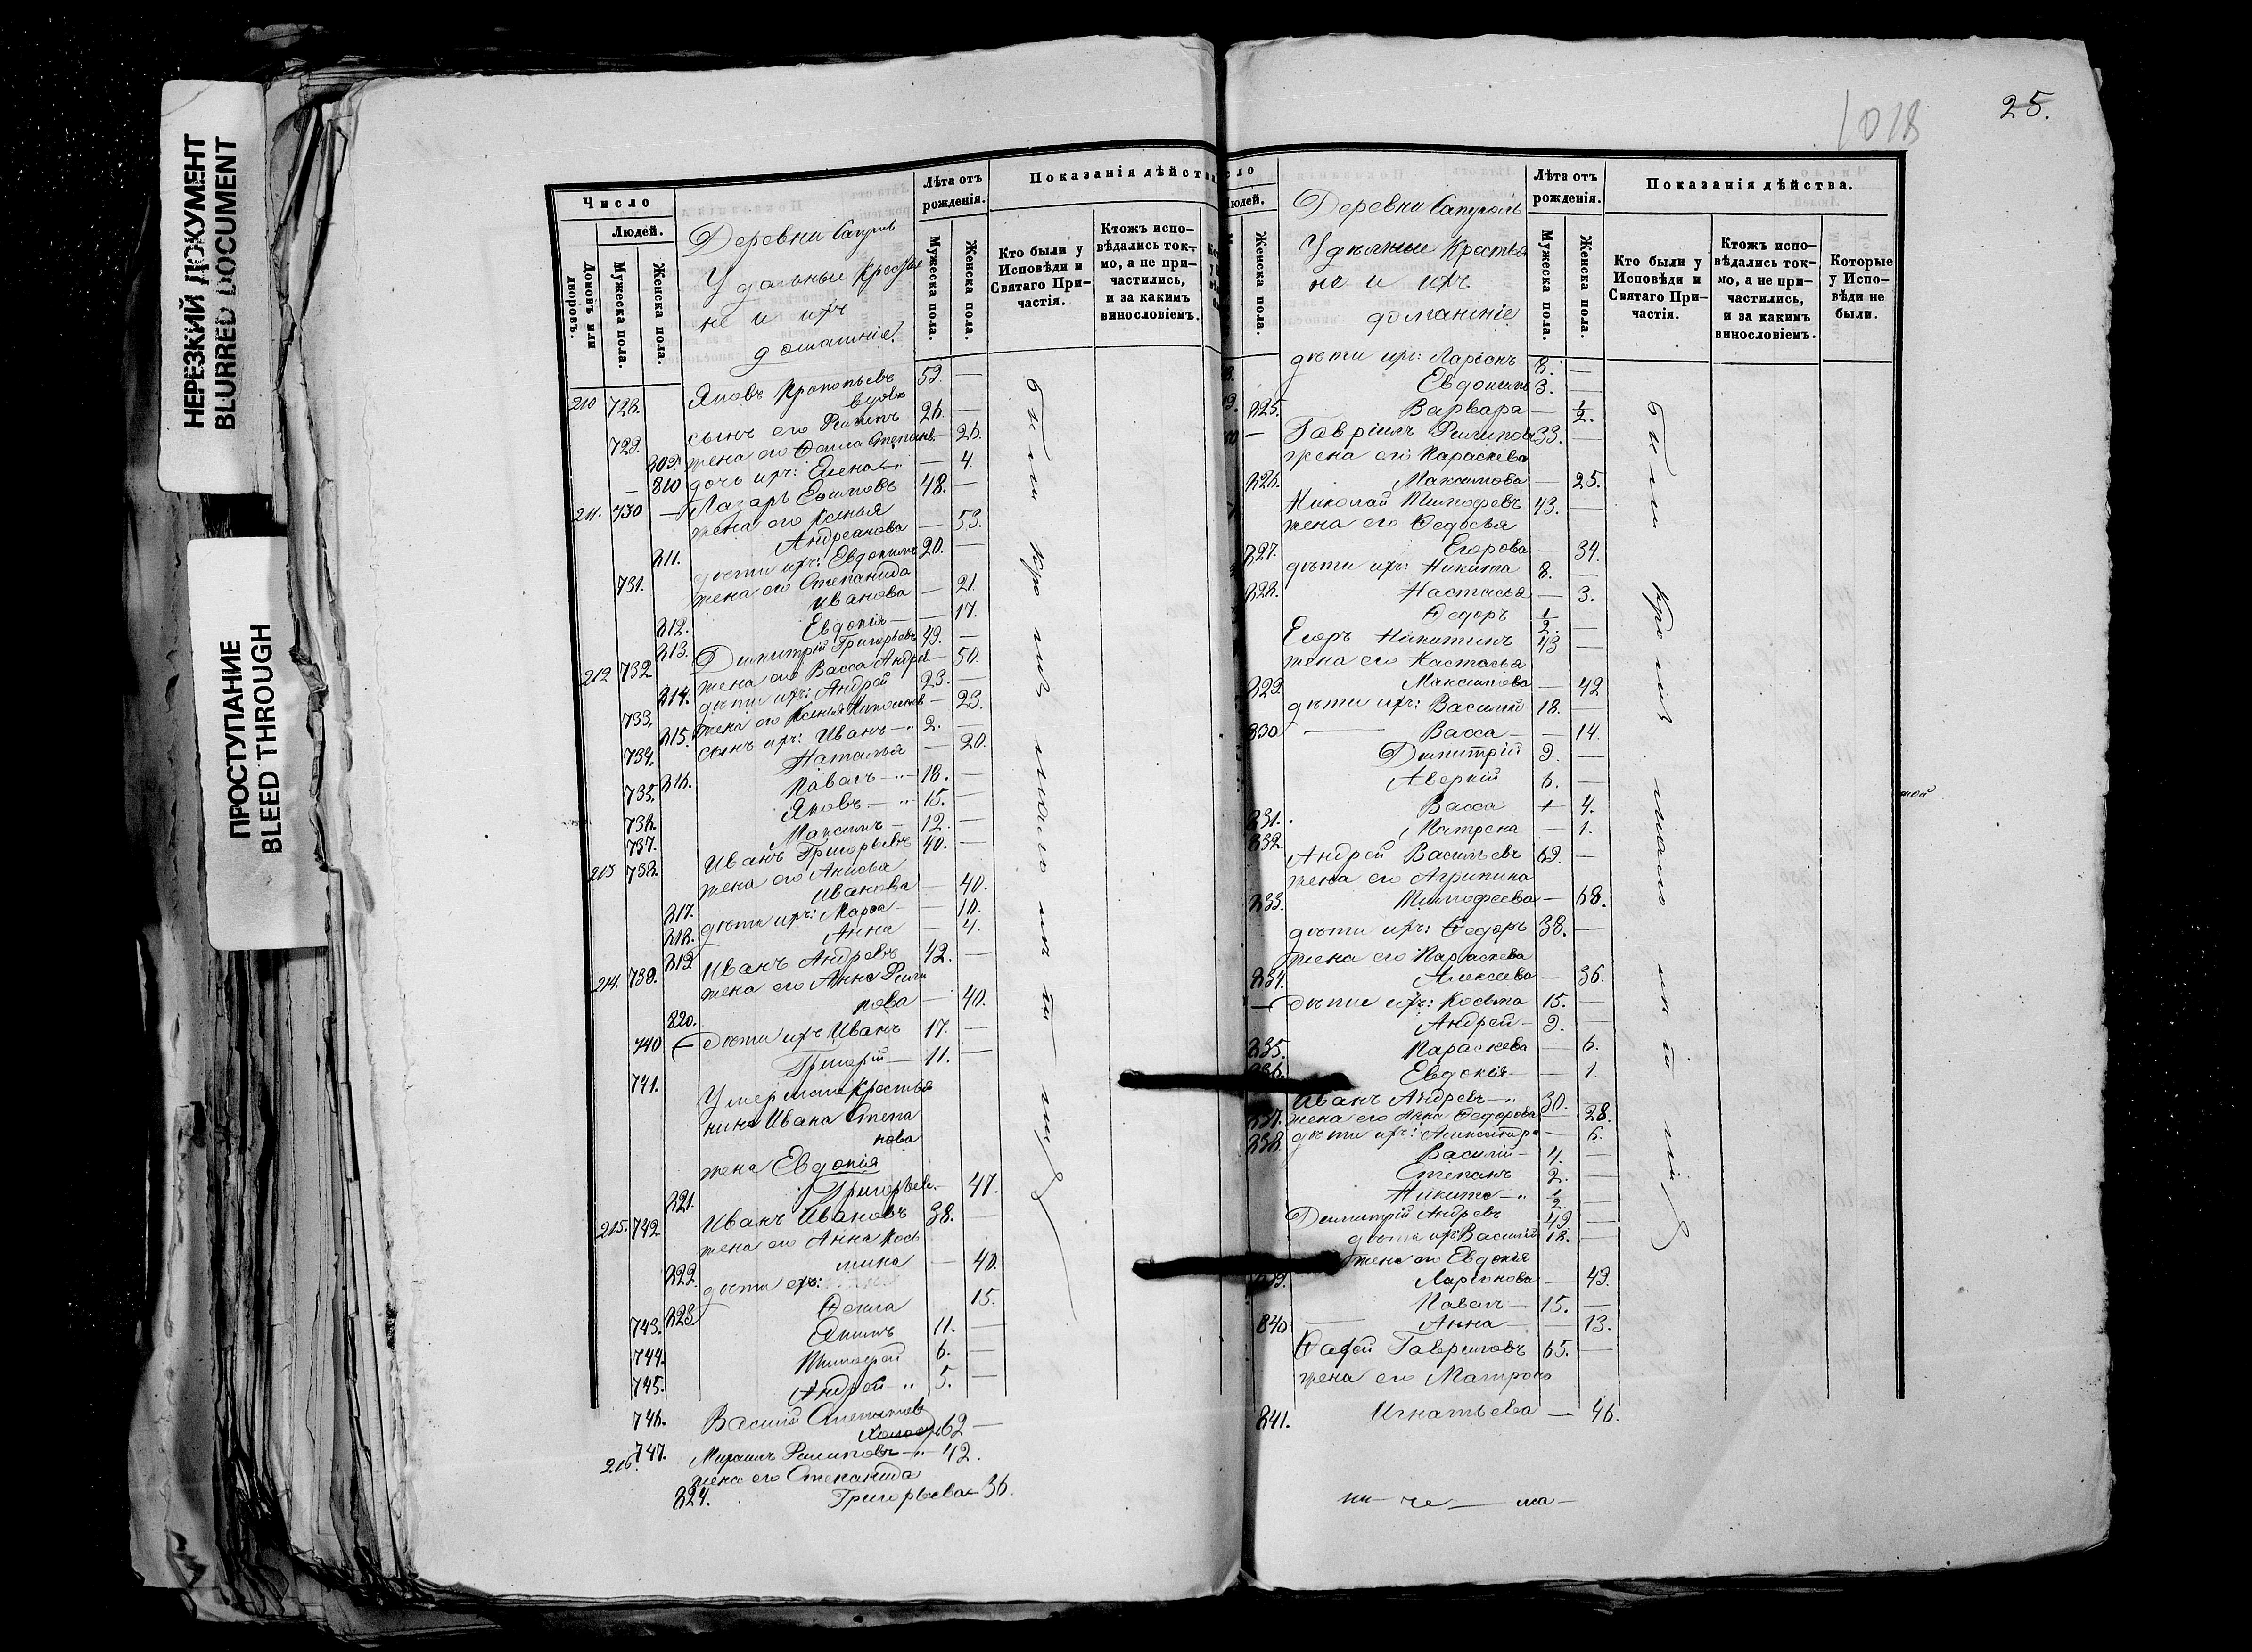 НЕРЕЗКИЙ ДОКУМЕНТ
BLURRED DOCUMENT
ПРОСТУПАНИЕ
BLEED THROUGH
Число
Людей.
Домовъ или дворовъ.
Мужеска пола.
Женска пола.
Деревни
Удѣльные Крестья
не и ихъ
домашніе.
Лѣта отъ рожденія.
Мужеска пола.
Женска пола.
Показанія дѣйства
Кто были у Исповѣди и Святаго При-частія.
Ктожъ испо-вѣдались ток-мо, а не при-частились, и за какимъ винословіемъ.
210 728. Яковъ Прокопьевъ 53. —
вдовъ
729. сынъ его Филипъ 26. —
809. жена его Фекла 26.
810 дочь ихъ: Елена — 4.
211. 730 Лазарь Ефимовъ 48. —
жена его Ксенья
811. Андреанова — 53.
731. дѣти ихъ: Евдокимъ 20. —
жена его Степанида
812. Иванова — 21.
813. Евдокія — 17.
212 732. Димитрій Григорьевъ 49. —
814. жена его Васса Андрее — 50.
733. дѣти ихъ: Андрей 23. —
815. жена его Ксенья — 23.
734. сынъ ихъ: Иванъ 2. —
816. Наталья — 20.
735. Павелъ 18. —
736. Яковъ 15. —
737. Максимъ 12. —
213 738. Иванъ Григорьевъ 40. —
жена его Анисья
817. Иванова — 40.
818. дѣти ихъ: Марѳа — 10.
819 Анна — 4.
214. 739. Иванъ Андревъ 42. —
жена его Анна Фили
820. пова — 40.
740 дѣти ихъ Иванъ 17. —
741. Григорій 11. —
Умершаго Крестья
нина Ивана Степа
нова
жена Евдокія
821. Григорьев. 47.
215. 742. Иванъ Ивановъ 38. —
жена его Анна Кось
822. мина — 40.
дѣти ихъ:
823 Фекла 15.
743. Якимъ 11. —
744. Тимофей 6. —
745. Андрей 5. —
746. Василій
Холостъ 62 —
216. 747. Михаилъ Филиповъ 42.
жена его Степанида
824. Григорьева 36.
были кромѣ малолѣтнихъ
1018
25.
Людей.
Женска пола.
Деревни
Удѣльные Крестья
не и ихъ
домашніе
Лѣта отъ рожденія.
Мужеска пола.
Женска пола.
Показанія дѣйства.
Кто были у Исповѣди и Святаго При-частія.
Ктожъ испо-вѣдались ток-мо, а не при-частились, и за какимъ винословіемъ.
Которые у Испо-вѣди не были.
дѣти ихъ: Ларіонъ 8. —
Евдокимъ 3. —
825. Варвара — 1/2.
Гавріилъ Филипов 33. —
жена его Параскева
826. Максимова — 25.
Николай Тимофевъ 43. —
жена его Федосья
827. Егорова — 34.
дѣти ихъ: Никита 8. —
828. Настасья — 3.
Федоръ 1/2. —
Егоръ Никитинъ 43 —
жена его Настасья
829 Максимова — 42
дѣти ихъ: Василій 18. —
830 Васса — 14.
Димитрій 9. —
Аверкій 6. —
831. Васса 4.
832 Матрена — 1.
Андрей Васильевъ 69. —
жена его Агрипина
833. Тимофеева — 68.
дѣти ихъ: Федоръ 38. —
жена его Параскева
834. Алексева — 36.
дѣти ихъ: Косьма 15. —
Андрей 9. —
835. Параскева — 6.
836. Евдокія — 1.
Иванъ Андревъ 30. —
837. жена его Анна Федорова — 28.
838 дѣти ихъ: Александра — 6.
Василій 4. —
Степанъ 2. —
Никита 1/2. —
Димитрій Андревъ 49 —
дѣти ихъ: Василій 18. —
жена его Евдокія
Ларіонова — 49.
Павелъ 15. —
840 Анна — 13.
Гавриловъ 65. —
жена его Матрона
841. Игнатьева — 46.
были кромѣ малолѣтнихъ